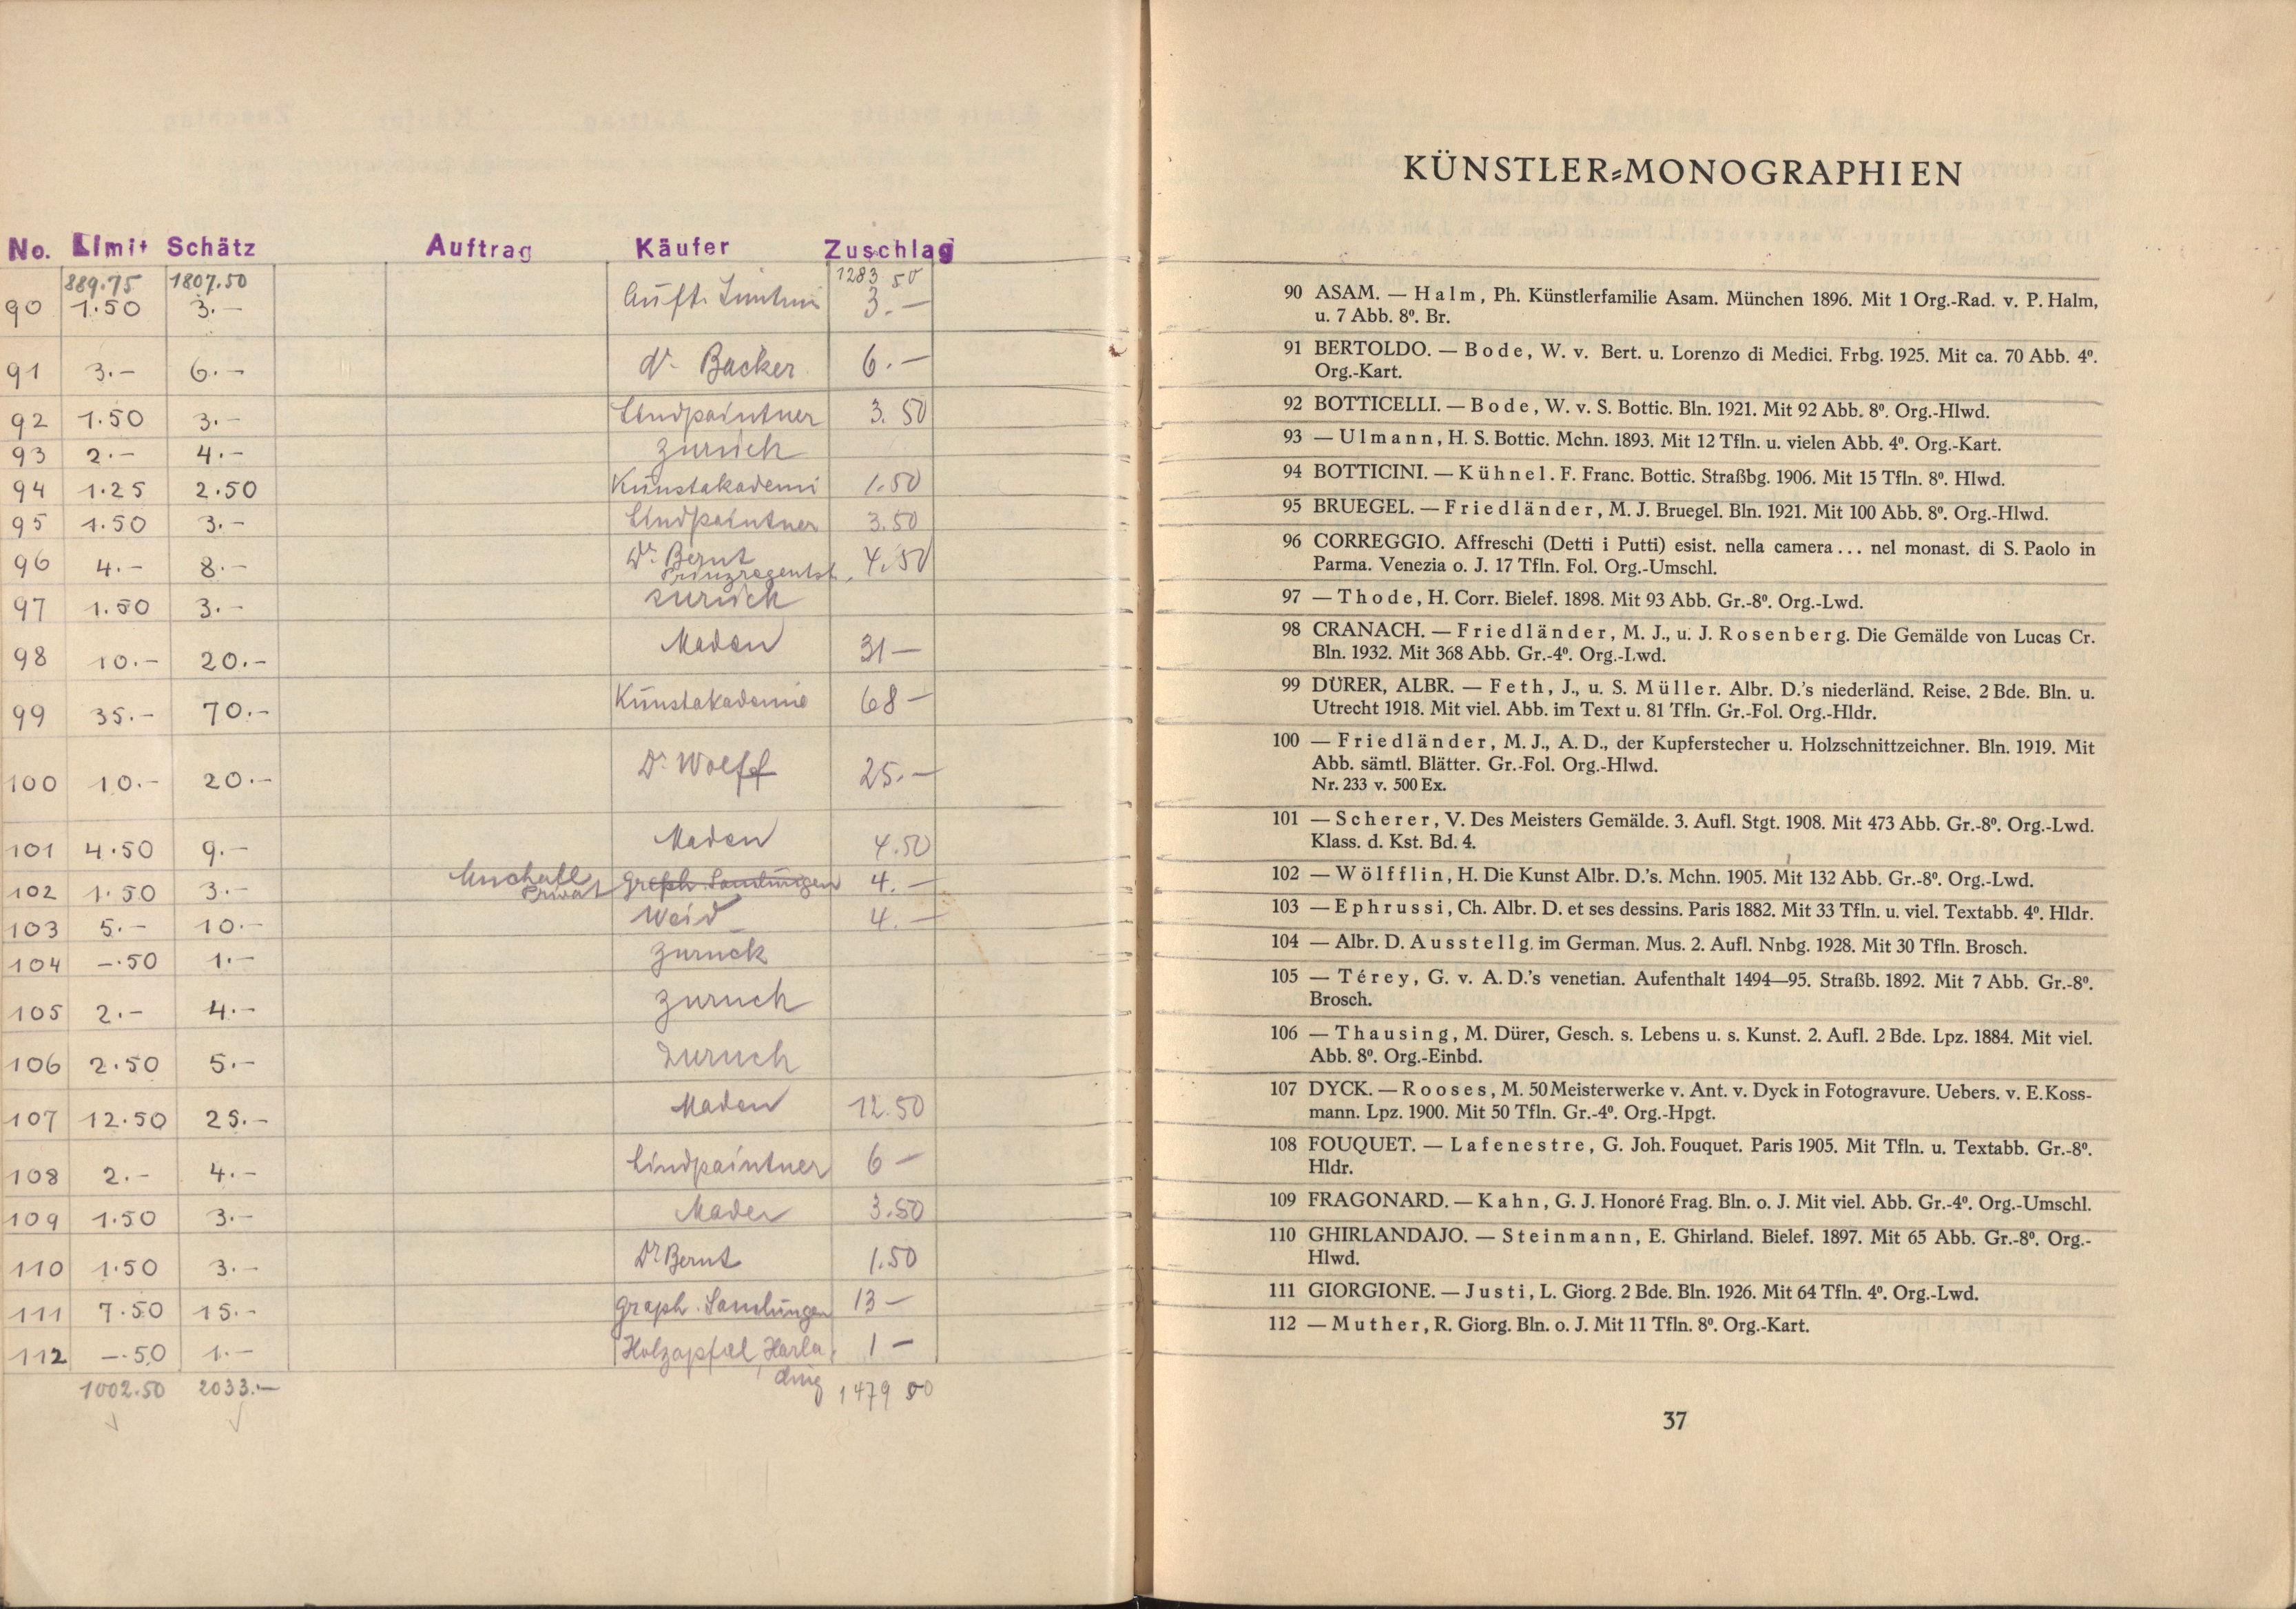 No. Limit Schätz Auftrag Käufer Zuschlag
889.75 1807.50 1283 50
90 1.50 3.– Auftr. 3.–
91 3.– 6.– Dr. Backer 6.–
92 1.50 3.– Lindpaintner 3.50
93 2.– 4.– zurück
94 1.25 2.50 Kunstakademi 1.50
95 1.50 3.– Lindpaintner 3.50
96 4.– 8.– Dr. Bernt 4.50
Prinzregentst.
97 1.50 3.– zurück
98 10.– 20.– Maden 31 –
99 35.– 70.– Kunstakademie 68 –
100 10.– 20.– Dr. Wolff 25.–
101 4.50 9.– Maden 4.50
102 1.50 3.– Graph. Samlungen 4.–
Privat
103 5.– 10.– Weid 4.–
104 –.50 1.– zurück
105 2.– 4.– zuruch
106 2.50 5.– zuruch
107 12.50 25.– Maden 12.50
108 2.– 4.– Lindpaintner 6 –
109 1.50 3.– Mader 3.50
110 1.50 3.– Dr Bernt 1.50
111 7.50 15.– Graph. Samlungen 13 –
112 –.50 1.– Holzapfel Harla 1 –
ding
1002.50 2033.– 1479 50
KÜNSTLER-MONOGRAPHIEN
90 ASAM. — Halm, Ph. Künstlerfamilie Asam. München 1896. Mit 1 Org.-Rad. v. P. Halm,
u. 7 Abb. 8⁰. Br.
91 BERTOLDO. — Bode, W. v. Bert. u. Lorenzo di Medici. Frbg. 1925. Mit ca. 70 Abb. 4⁰.
Org.-Kart.
92 BOTTICELLI. — Bode, W. v. S. Bottic. Bln. 1921. Mit 92 Abb. 8⁰. Org.-Hlwd.
93 — Ulmann, H. S. Bottic. Mchn. 1893. Mit 12 Tfln. u. vielen Abb. 4⁰. Org.-Kart.
94 BOTTICINI. — Kühnel. F. Franc. Bottic. Straßbg. 1906. Mit 15 Tfln. 8⁰. Hlwd.
95 BRUEGEL. — Friedländer, M. J. Bruegel. Bln. 1921. Mit 100 Abb. 8⁰. Org.-Hlwd.
96 CORREGGIO. Affreschi (Detti i Putti) esist. nella camera... nel monast. di S. Paolo in
Parma. Venezia o. J. 17 Tfln. Fol. Org.-Umschl.
97 — Thode, H. Corr. Bielef. 1898. Mit 93 Abb. Gr.-8⁰. Org.-Lwd.
98 CRANACH. — Friedländer, M. J., u. J. Rosenberg. Die Gemälde von Lucas Cr.
Bln. 1932. Mit 368 Abb. Gr.-4⁰. Org.-Lwd.
99 DÜRER, ALBR. — Feth, J., u. S. Müller. Albr. D.'s niederländ. Reise. 2 Bde. Bln. u.
Utrecht 1918. Mit viel. Abb. im Text u. 81 Tfln. Gr.-Fol. Org.-Hldr.
100 — Friedländer, M. J., A. D., der Kupferstecher u. Holzschnittzeichner. Bln. 1919. Mit
Abb. sämtl. Blätter. Gr.-Fol. Org.-Hlwd.
Nr. 233 v. 500 Ex.
101 — Scherer, V. Des Meisters Gemälde. 3. Aufl. Stgt. 1908. Mit 473 Abb. Gr.-8⁰. Org.-Lwd.
Klass. d. Kst. Bd. 4.
102 — Wölfflin, H. Die Kunst Albr. D.'s. Mchn. 1905. Mit 132 Abb. Gr.-8⁰. Org.-Lwd.
103 — Ephrussi, Ch. Albr. D. et ses dessins. Paris 1882. Mit 33 Tfln. u. viel. Textabb. 4⁰. Hldr.
104 — Albr. D. Ausstellg. im German. Mus. 2. Aufl. Nnbg. 1928. Mit 30 Tfln. Brosch.
105 — Térey, G. v. A. D.'s venetian. Aufenthalt 1494—95. Straßb. 1892. Mit 7 Abb. Gr.-8⁰.
Brosch.
106 — Thausing, M. Dürer, Gesch. s. Lebens u. s. Kunst. 2. Aufl. 2 Bde. Lpz. 1884. Mit viel.
Abb. 8⁰. Org.-Einbd.
107 DYCK. — Rooses, M. 50 Meisterwerke v. Ant. v. Dyck in Fotogravure. Uebers. v. E. Koss-
mann. Lpz. 1900. Mit 50 Tfln. Gr.-4⁰. Org.-Hpgt.
108 FOUQUET. — Lafenestre, G. Joh. Fouquet. Paris 1905. Mit Tfln. u. Textabb. Gr.-8⁰.
Hldr.
109 FRAGONARD. — Kahn, G. J. Honoré Frag. Bln. o. J. Mit viel. Abb. Gr.-4⁰. Org.-Umschl.
110 GHIRLANDAJO. — Steinmann, E. Ghirland. Bielef. 1897. Mit 65 Abb. Gr.-8⁰. Org.-
Hlwd.
111 GIORGIONE. — Justi, L. Giorg. 2 Bde. Bln. 1926. Mit 64 Tfln. 4⁰. Org.-Lwd.
112 — Muther, R. Giorg. Bln. o. J. Mit 11 Tfln. 8⁰. Org.-Kart.
37